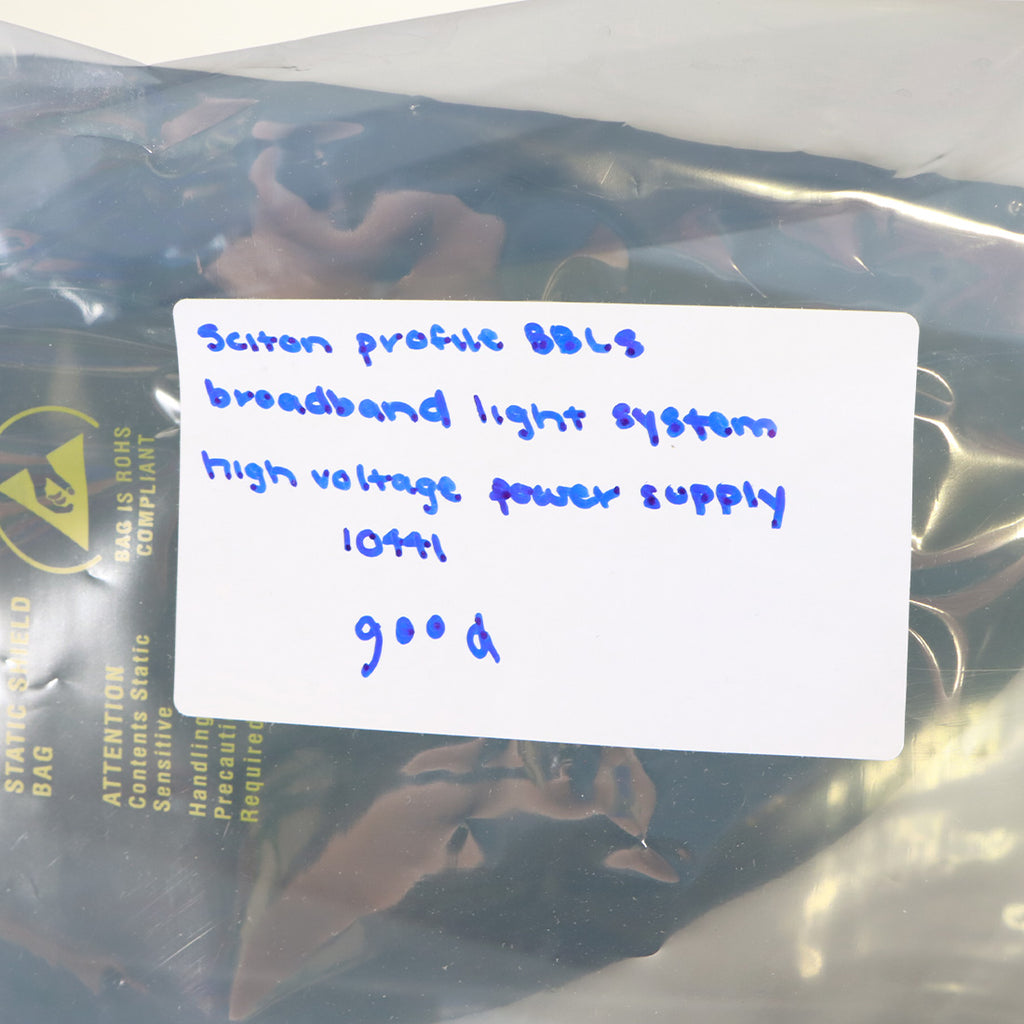 Sciton profile BBLS
broadband light system
high voltage power supply
10441
good
BAG IS ROHS
COMPLIANT
STATIC SHIELD
BAG
ATTENTION
Contents Static
Sensitive
Handling
Precauti
Required